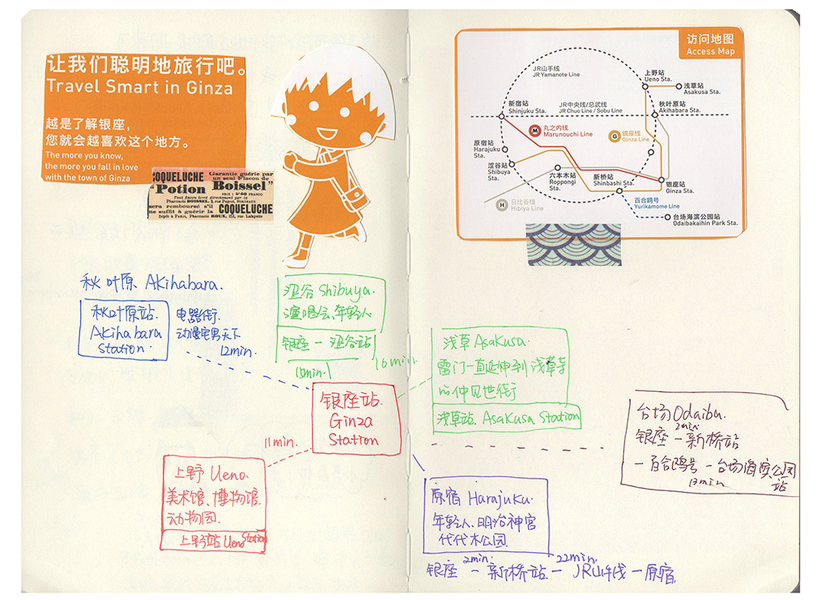 让我们聪明地旅行吧。
Travel Smart in Ginza
越是了解银座，
您就会越喜欢这个地方。
The more you know,
the more you fall in love
with the town of Ginza
COQUELUCHE
"Potion Boissel"
COQUELUCHE
访问地图
Access Map
JR山手线
JR Yamanote Line
上野站
Ueno Sta.
浅草站
Asakusa Sta.
新宿站
Shinjuku Sta.
JR中央线/总武线
JR Chuo Line / Sobu Line
秋叶原站
Akihabara Sta.
M
丸之内线
Marunouchi Line
G
银座线
Ginza Line
原宿站
Harajuku
Sta.
涩谷站
Shibuya
Sta.
六本木站
Roppongi
Sta.
新桥站
Shinbashi Sta.
银座站
Ginza Sta.
H
日比谷线
Hibiya Line
百合鸥号
Yurikamome Line
台场海滨公园站
Odaibakaihin Park Sta.
秋叶原 Akihabara.
秋叶原站.
Akihabara
Station.
电器街
动漫宅男天下
12min.
涩谷 Shibuya.
演唱会、年轻人
银座 - 涩谷站
15min.
16min.
浅草 Asakusa.
雷门一直延伸到 浅草寺
的仲见世街
浅草站. Asakusa Station
银座站.
Ginza
Station
11min.
上野 Ueno.
美术馆、博物馆
动物园.
上野站 Ueno Station
台场 Odaiba.
银座 - 2min. 新桥站
- 百合鸥号 - 台场海滨公园站
13min
原宿 Harajuku.
年轻人、明治神宫
代代木公园
银座 - 2min. 新桥站 - 22min. JR山手线 - 原宿